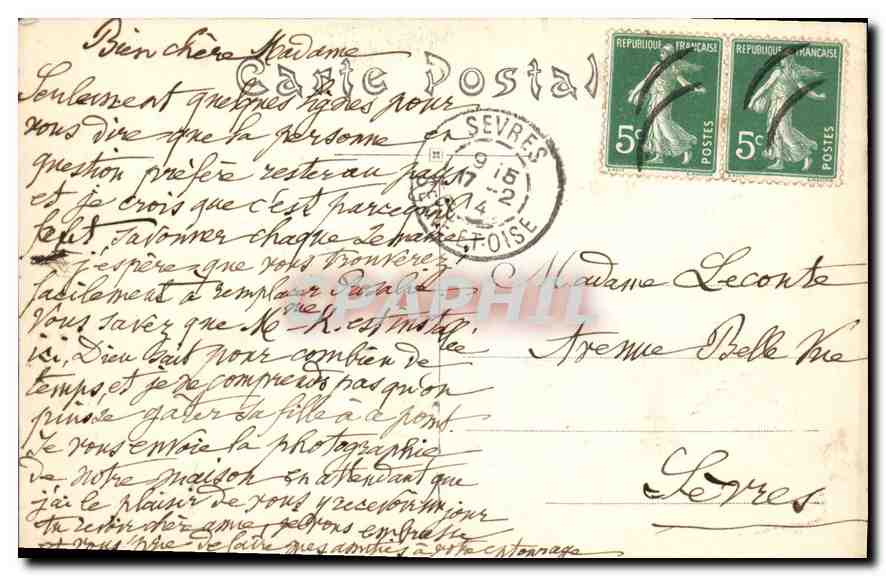 Bien chère Madame
Carte Postale
Seulement quelques lignes pour
vous dire que la personne en
question préfère rester au pays
et je crois que c'est parce qu'il
faut savonner chaque semaine
et j'espère que vous trouverez
facilement à remplacer Rosalie
Vous savez que Me R. est installée
ici, Dieu sait pour combien de
temps, et je ne comprends pas qu'on
puisse gâter sa fille à ce point.
Je vous envoie la photographie
de notre maison en attendant que
j'ai le plaisir de vous y recevoir un jour
chère amie, je vous embrasse
et vous prie de faire mes amitiés à votre entourage
REPUBLIQUE FRANÇAISE
5c
POSTES
REPUBLIQUE FRANÇAISE
5c
POSTES
SEVRES
9 15
17 2
14
SEINE-ET-OISE
CPAPHIL
Madame Leconte
Avenue Belle Vue
Sèvres